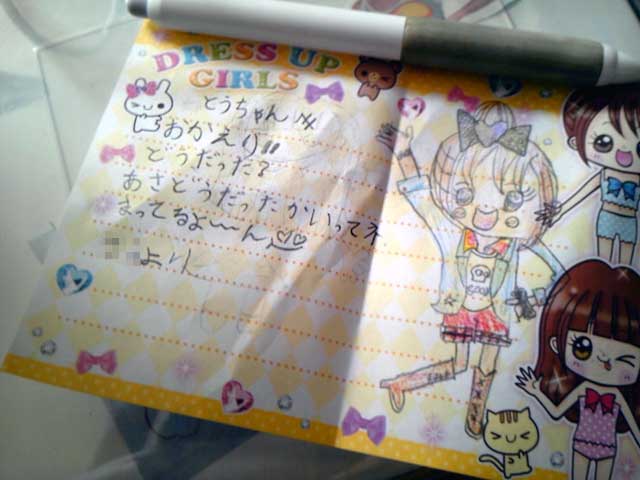 DRESS UP
GIRLS
とうちゃん
おかえり!!
どうだった?
あさどうだったかいってネ
まってるよ〜〜ん
より